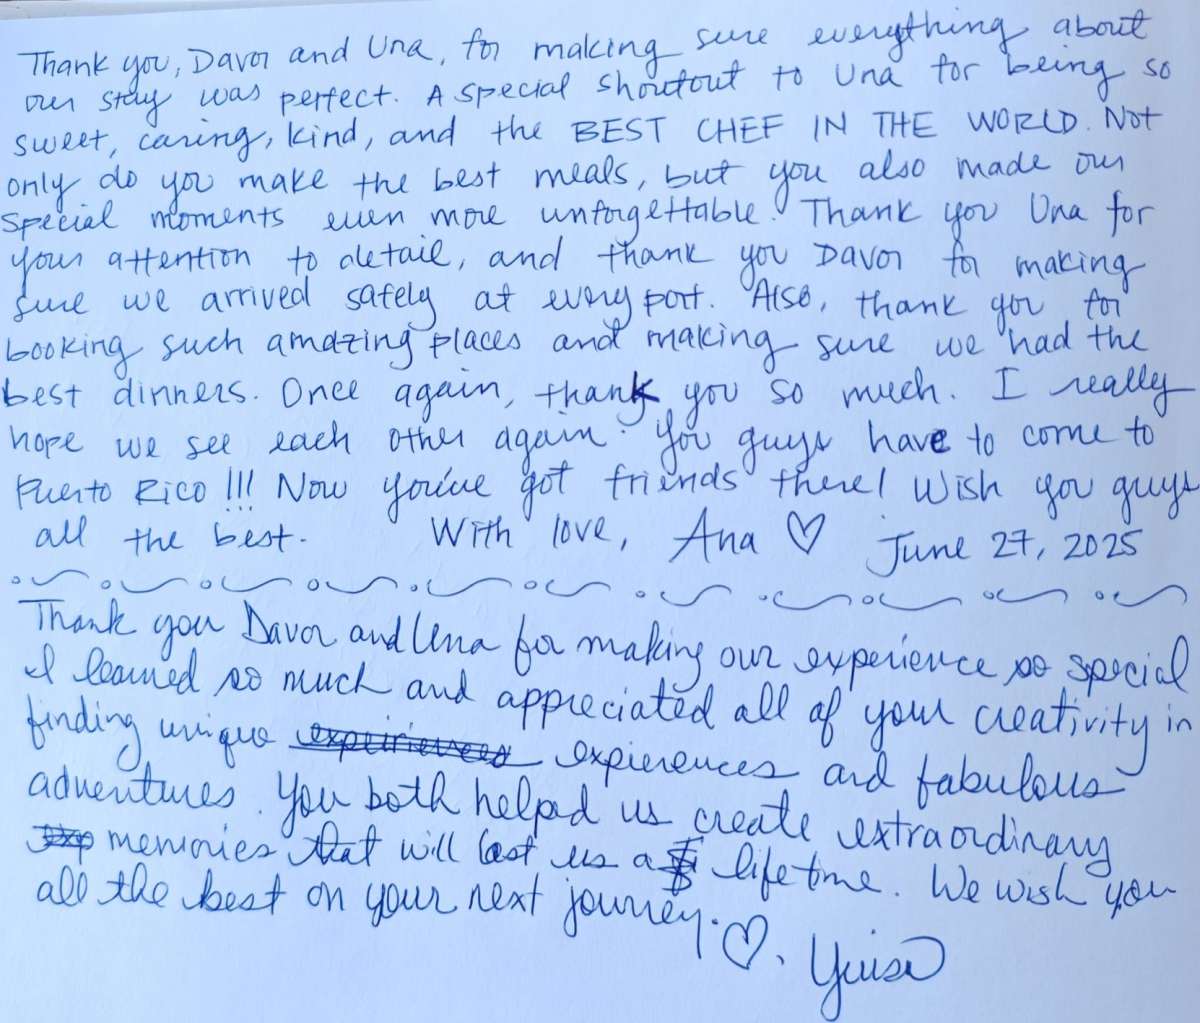 Thank you, Davor and Una, for making sure everything about
our stay was perfect. A special shoutout to Una for being so
sweet, caring, kind, and the BEST CHEF IN THE WORLD. Not
only do you make the best meals, but you also made our
special moments even more unforgettable. Thank you Una for
your attention to detail, and thank you Davor for making
sure we arrived safely at every port. Also, thank you for
booking such amazing places and making sure we had the
best dinners. Once again, thank you so much. I really
hope we see each other again. You guys have to come to
Puerto Rico!!! Now you've got friends there! Wish you guys
all the best. With love, Ana ♡ June 27, 2025
Thank you Davor and Una for making our experience so special
I learned so much and appreciated all of your creativity in
finding unique experiences and fabulous
adventures. You both helped us create extraordinary
memories that will last us a lifetime. We wish you
all the best on your next journey. ♡.